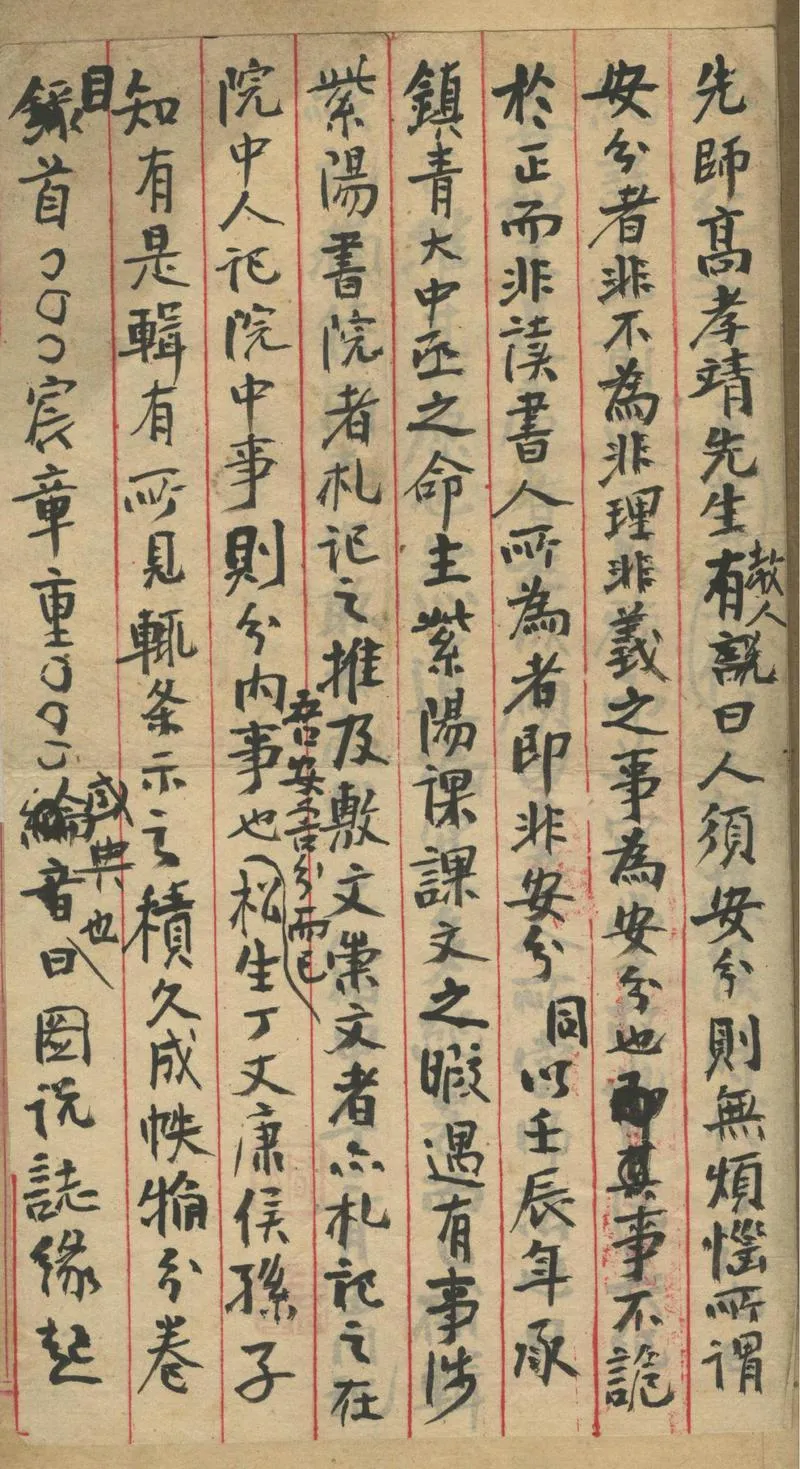 先師高孝靖先生有教人說曰人須安分則無煩惱所謂
安分者非不為非理非義之事為安分也即其事不詭
於正而非讀書人所為者即非安分同以壬辰年承
鎮青大中丞之命主紫陽課課文之暇遇有事涉
紫陽書院者札記之推及敷文崇文者亦札記之在
院中人記院中事則分內事也吾安吾分而已松生丁丈康侯孫子
知有是輯有所見輒条示之積久成帙犕分卷
目錄首宸章重綸音盛典也曰圖說誌緣起